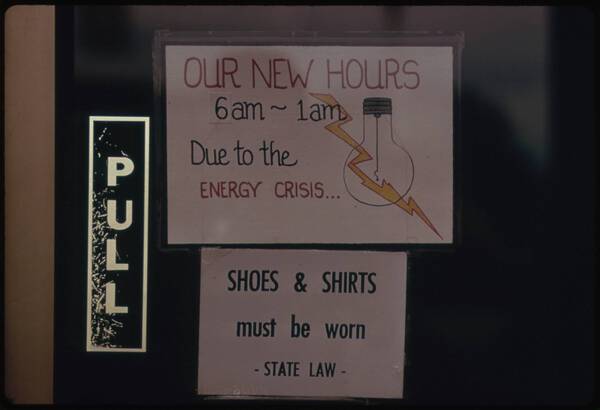 PULL
OUR NEW HOURS
6am ~ 1am
Due to the
ENERGY CRISIS...
SHOES & SHIRTS
must be worn
- STATE LAW -